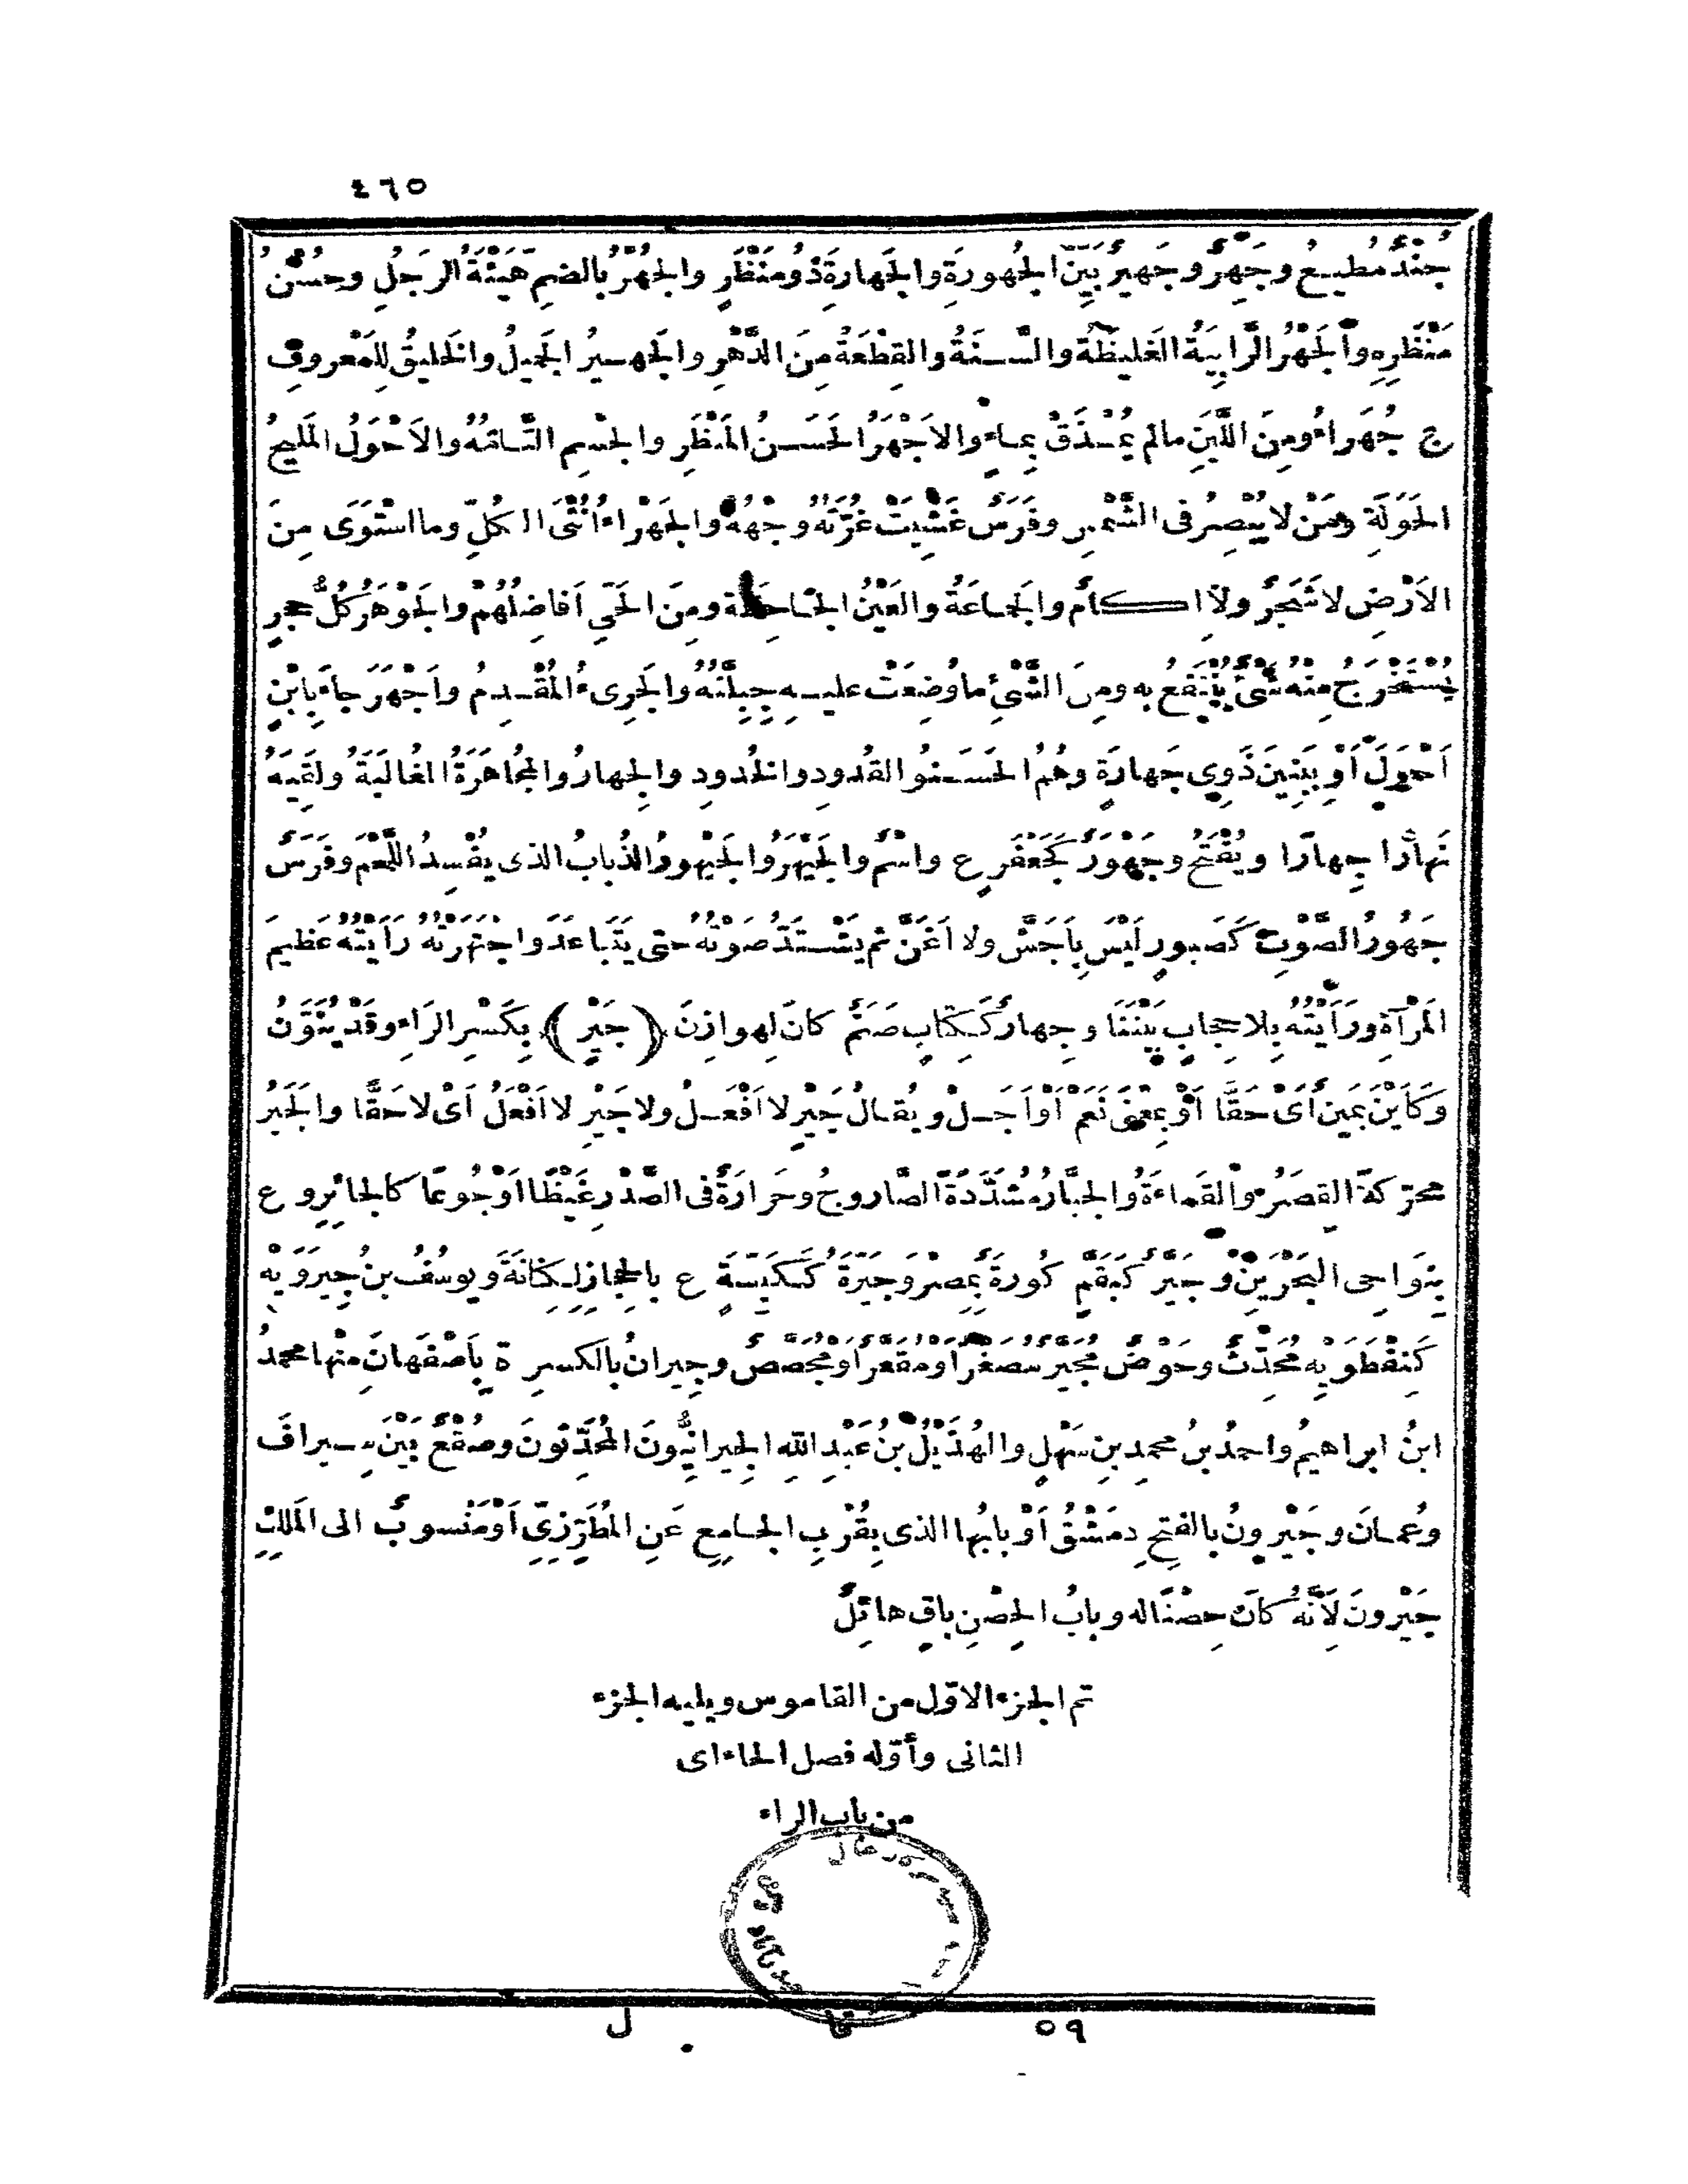 ٤٦٥
جُنْدٌ مُطيعٌ وجَهِرٌ وجَهيرٌ بَيِّنُ الجُهورَةِ والجَهارَةِ ذُو مَنْظَرٍ والجُهْرُ بالضمِّ هَيْئَةُ الرَجُلِ وحُسْنُ
مَنْظَرِهِ والجَهْرُ الرَّابِيَةُ الغَليظَةُ والسَّنَةُ والقِطْعَةُ مِنَ الدَّهْرِ والجَهيرُ الجَميلُ والخَليقُ لِلمَعْروفِ
ج جُهَراءُ ومِنَ اللَّبَنِ مالم يُمْذَقْ بماءٍ والاَجْهَرُ الحَسَنُ المَنْظَرِ والجِسْمِ التَّامُّهُ والاَحْوَلُ المَليحُ
الحَوَلَةِ ومَنْ لا يُبْصِرُ فى الشَّمْسِ وفَرَسٌ غَشِيَتْ غُرَّتُهُ وجْهَهُ والجَهْراءُ اُنْثَى الكُلِّ وما اسْتَوَى مِنَ
الاَرْضِ لا شَجَرٌ ولا اِكامٌ والجَماعَةُ والعَيْنُ الجَاحِظَة ومِنَ الحَىِّ اَفاضِلُهُمْ والجَوْهَرُ كُلُّ حجرٍ
يُسْتَخْرَجُ مِنْهُ شَىْءٌ يُنْتَفَعُ به ومِنَ الشَّىْءِ ما وُضِعَتْ عليهِ جِبِلَّتُهُ والجَرِىءُ المُقْدِمُ واَجْهَرَ جاءَ بِابْنٍ
اَحْوَلَ اَوْ بِبَنِينَ ذَوِى جَهارَةٍ وهُمُ الحَسَنُو القُدودِ والخُدودِ والجِهارُ والمُجاهَرَةُ المُغالَبَةُ ولَقِيَهُ
نَهارًا جِهارًا ويُفْتَحُ وجَهْوَرٌ كَجَعْفَرٍ ع واسْمٌ والجَيْهَرُ والجَيْهورُ الذُبابُ الذى يُفْسِدُ اللَّحْمَ وفَرَسٌ
جَهُورُ الصَّوْتِ كَصَبورٍ لَيْسَ بِاَجَشَّ ولا اَغَنَّ ثم يَشْتَدُّ صَوْتُهُ حتى يَتَباعَدَ واجْتَهَرْتُهُ رَاَيْتُهُ عَظيمَ
المَرْآةِ ورَاَيْتُهُ بِلا حِجابٍ بَيْنَنا وجِهارٌ كَكِتابٍ صَنَمٌ كانَ لِهوازِنَ ﴿ جَيْرِ ﴾ بِكَسْرِ الرَاءِ وقَدْ يُنَوَّنُ
وَكَاَيْنَ يَمينٌ اَىْ حَقًّا اَوْ بِمَعْنَى نَعَمْ اَوْ اَجَلْ ويُقالُ جَيْرِ لا اَفْعَلُ ولا جَيْرِ لا اَفْعَلُ اَىْ لا حَقًّا والجَيَرُ
محرّكةً القِصَرُ والقَماءَةُ والجَيَّارُ مُشَدَّدَةً الصَّاروجُ وحَرارَةٌ فى الصَّدْرِ غَيْظًا اَوْ جُوعًا كالجائِرِ و ع
بِنَواحِى البَحْرَيْنِ وجَيَّرٌ كَبَقَّمٍ كُورَةٌ بِمِصْرَ وجَيِّرَةُ كَكَيِّسَةٍ ع بالحِجازِ لِكِنانَةَ ويوسُفُ بنُ جِيرَوَيْهِ
كَنِفْطَوَيْهِ مُحَدِّثٌ وحَوْضٌ مُجَيَّرٌ مُصَغَّرٌ اَوْ مُقَعَّرٌ اَوْ مُجَصَّصٌ وجِيرانُ بالكسرِ ة بِاَصْفَهانَ مِنْها محمدُ
ابنُ ابراهيمُ واحمدُ بنُ محمدِ بنِ سَهْلٍ والهُذَيْلُ بنُ عَبْدِ اللهِ الجِيرانِيُّونَ المُحَدِّثونَ وصُقْعٌ بَيْنَ سِيرافَ
وعُمانَ وجَيْرونُ بالفتحِ دِمَشْقُ اَوْ بابُها الذى بِقُرْبِ الجامِعِ عَنِ المُطَرِّزِىِّ اَوْ مَنْسوبٌ الى المَلِكِ
جَيْرونَ لِاَنَّهُ كانَ حِصْنًا له وبابُ الحِصْنِ باقٍ هائِلٌ
تم الجزء الاوّل من القاموس ويليه الجزء
الثانى وأوّله فصل الحاء اى
من باب الراء
٥٩ قا ل